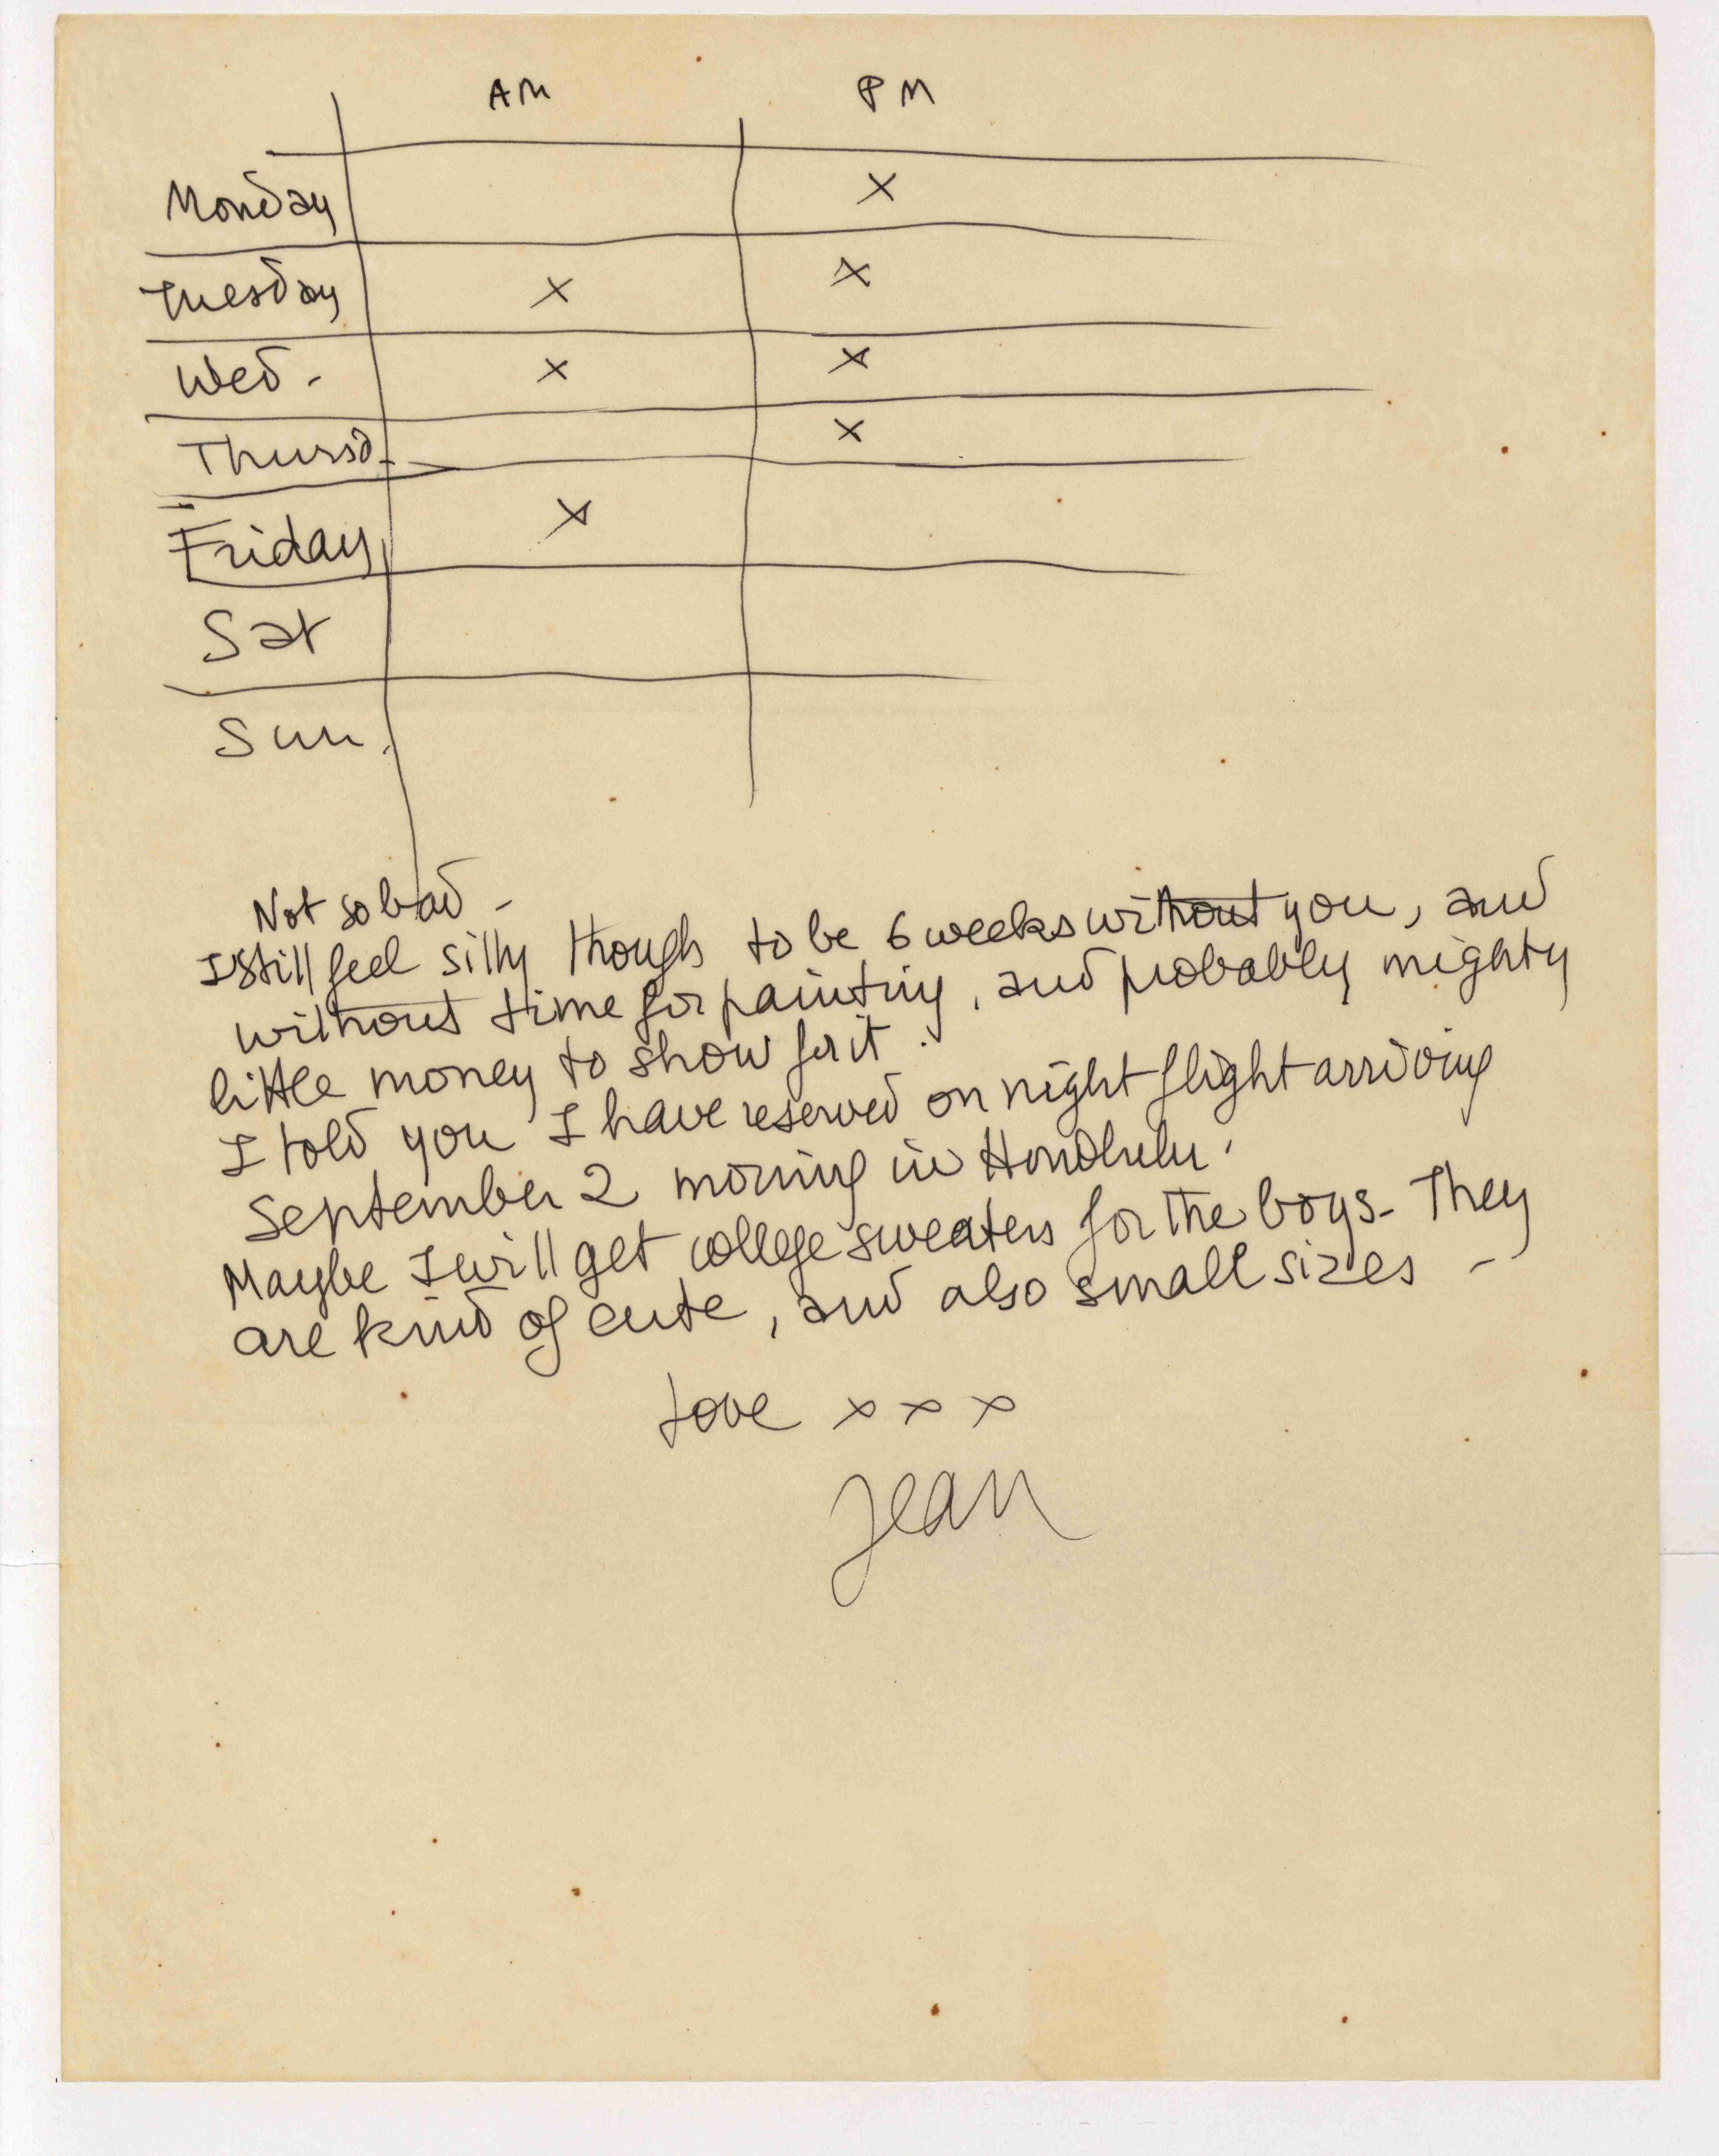 AM PM
Monday X
Tuesday X X
Wed - X X
Thursd. X
Friday X
Sat
Sun.
Not so bad -
I still feel silly though to be 6 weeks without you, and
without time for painting, and probably mighty
little money to show for it.
I told you I have reserved on night flight arriving
September 2 morning in Honolulu.
Maybe I will get college sweaters for the boys - They
are kind of cute, and also small sizes -
Love x x x
Jean